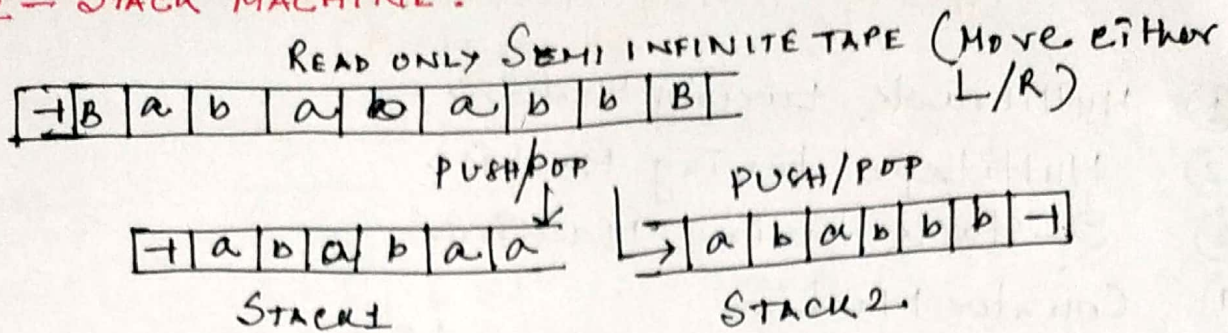 STACK MACHINE:
READ ONLY SEMI INFINITE TAPE (Move either
L/R)
⊣ B a b a b a b b B
PUSH/POP PUSH/POP
⊣ a b a b a a a b a b b b ⊣
STACK1 STACK2.